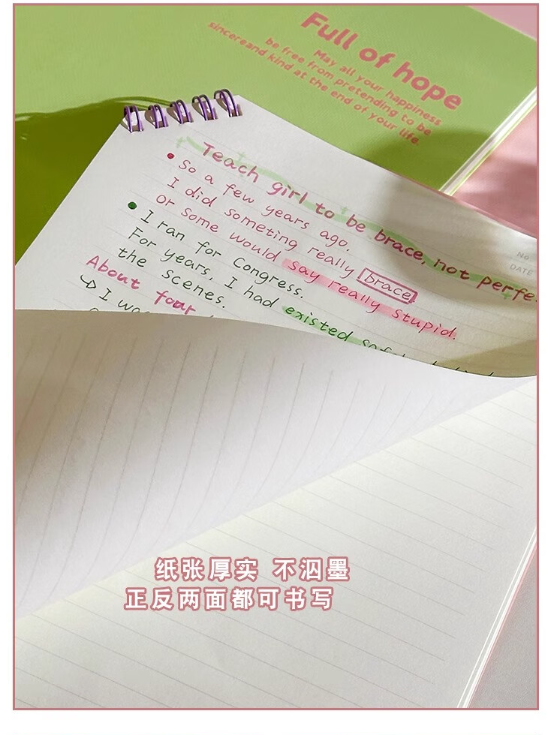 Full of hope
May all your happiness
be free from pretending to be
sincereand kind at the end of your life.
No
DATE
Teach girl to be brace, not perfe
So a few years ago,
I did someting really brace
or some would say really stupid.
I ran for Congress.
For years, I had existed
the scenes.
About four
I wa
纸张厚实 不洇墨
正反两面都可书写